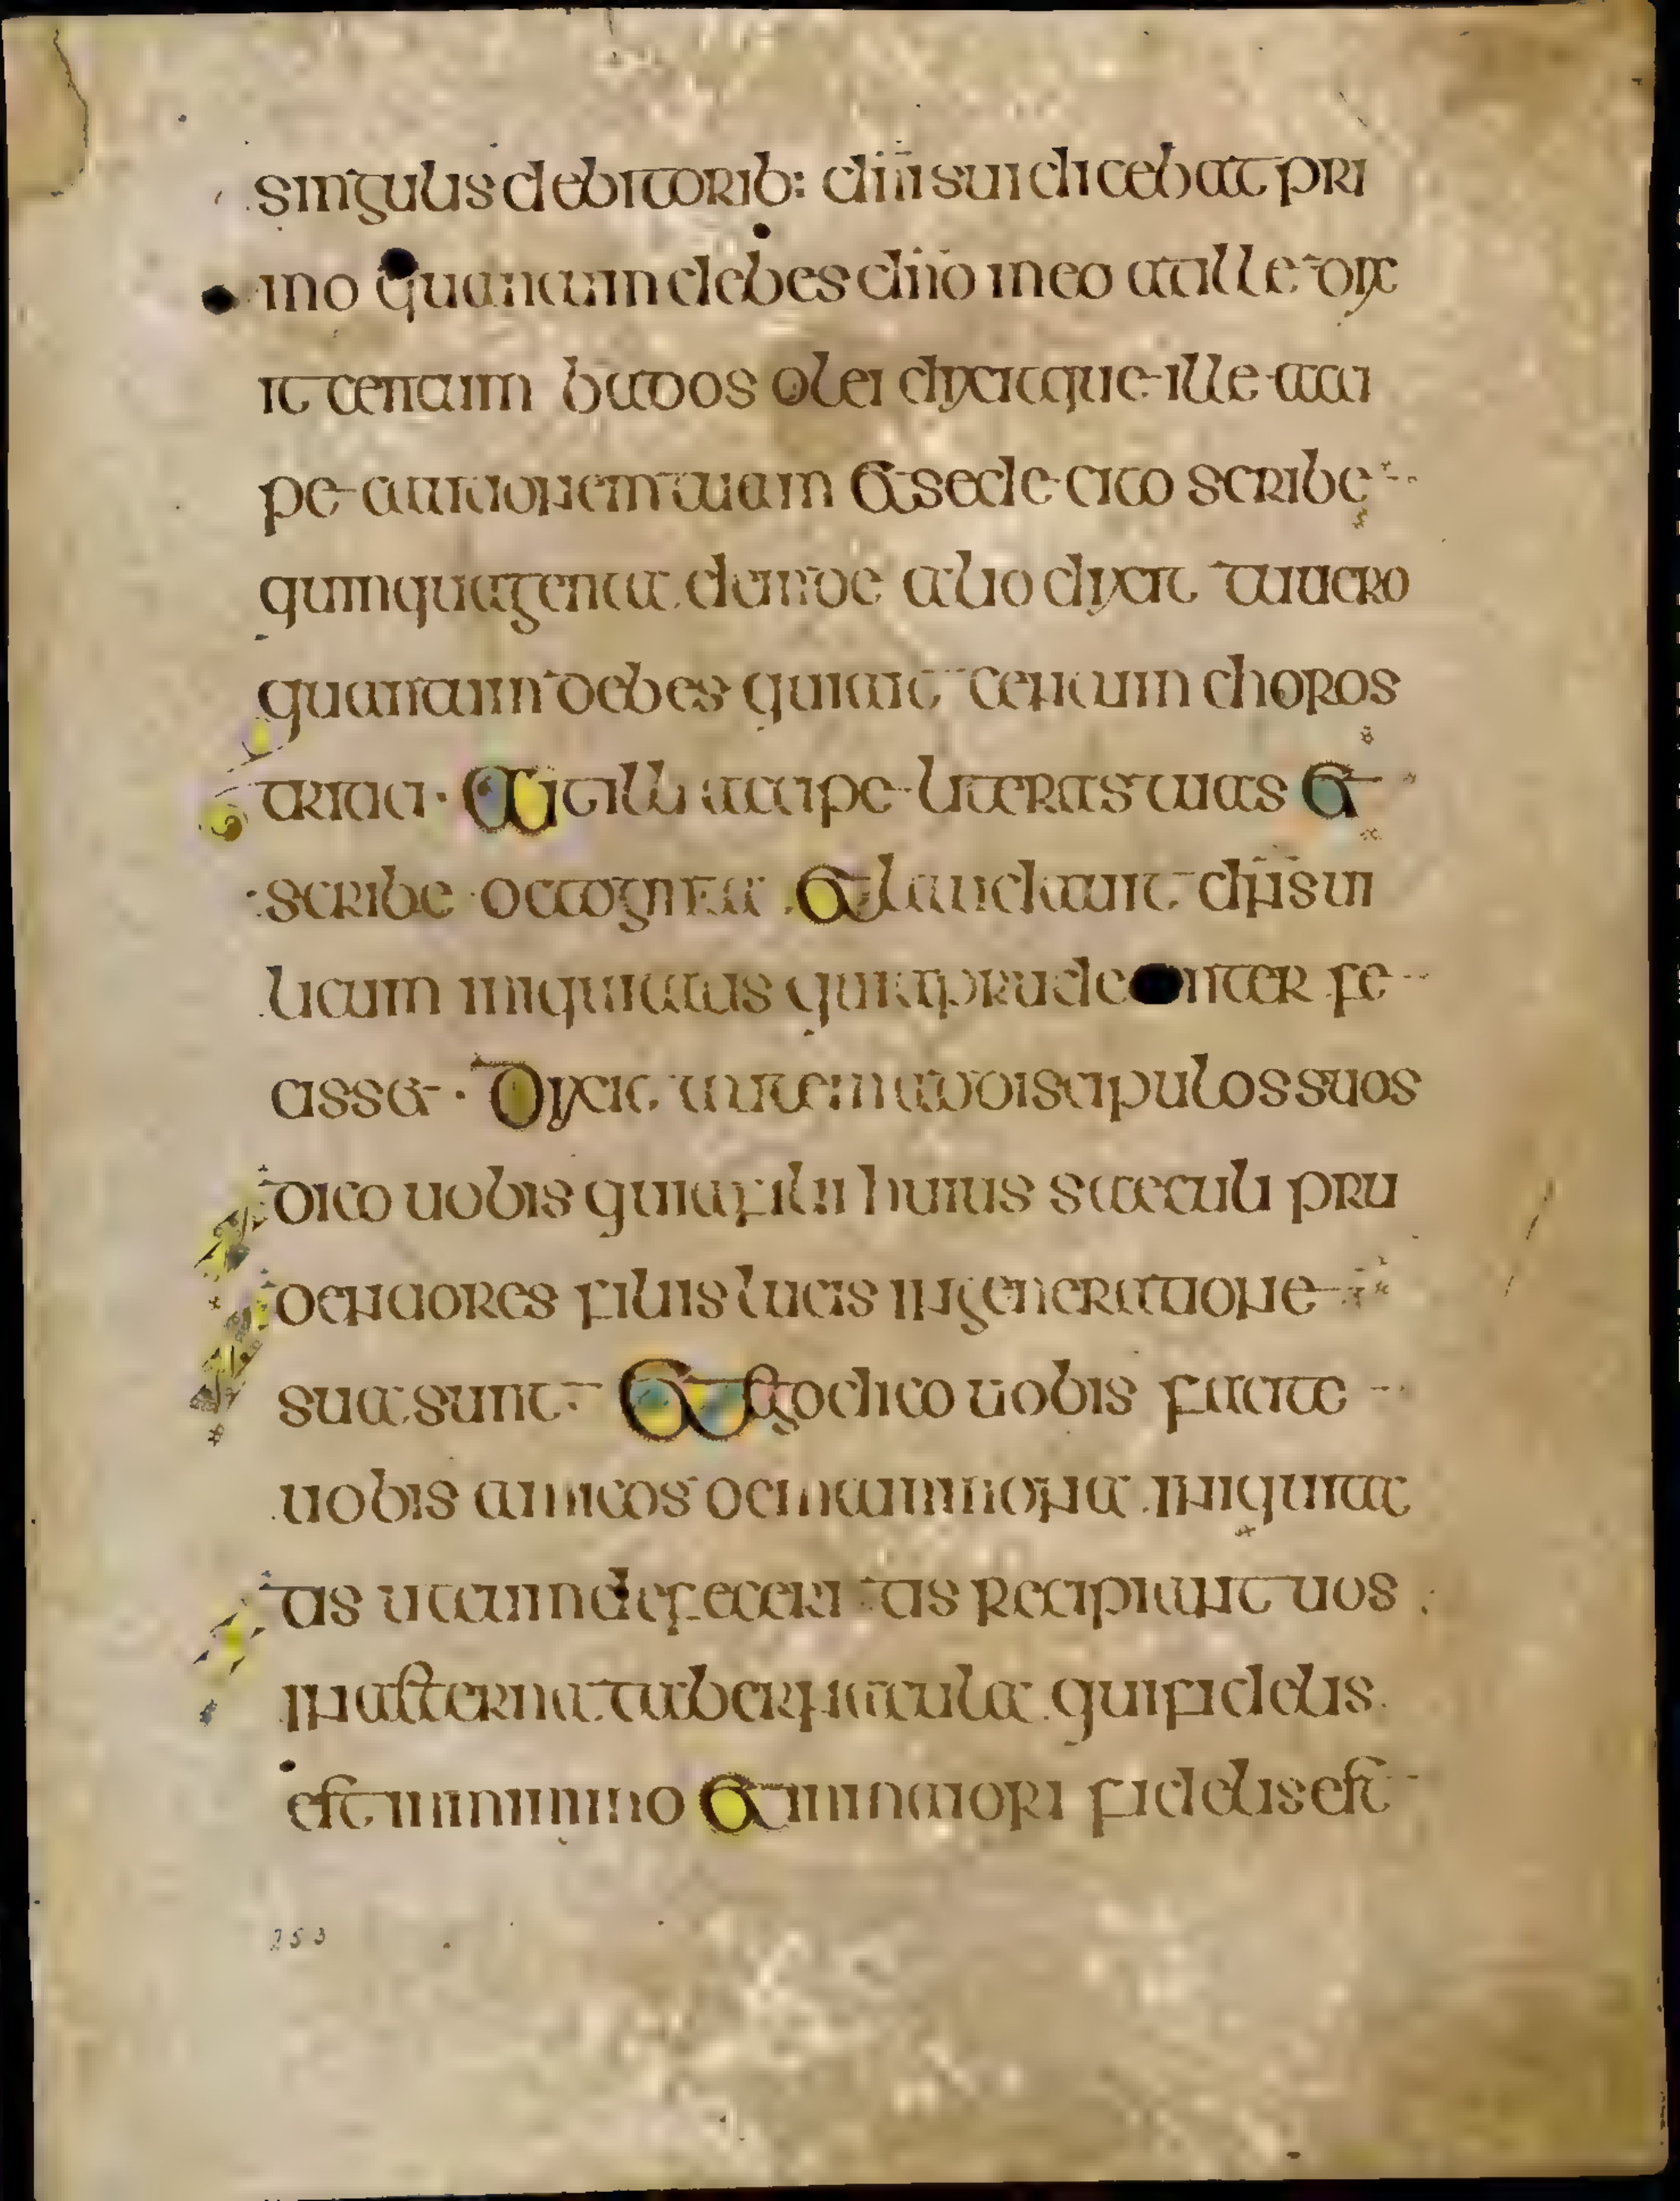 singulis debitorib: dn̄i sui dicebat pri
mo quantum debes dn̄o meo at ille dix
it centum bados olei dixitque ille acci
pe cautionem tuam et sede cito scribe
quinquagenta deinde alio dixit tu uero
quantum debes qui ait centum choros
tritici · Ait illi accipe literas tuas et
scribe octoginta et laudauit dn̄s uil
licum iniquitatis quia prudenter fe
cisset · Dixit autem ad discipulos suos
dico uobis quia filii huius saeculi pru
dentiores filiis lucis in generatione
sua sunt · Et ego dico uobis facite
uobis amicos de mammona iniquita
tis ut cum defeceritis recipiant uos
in aeterna tabernacula qui fidelis
est in minimo et in maiori fidelis est
253